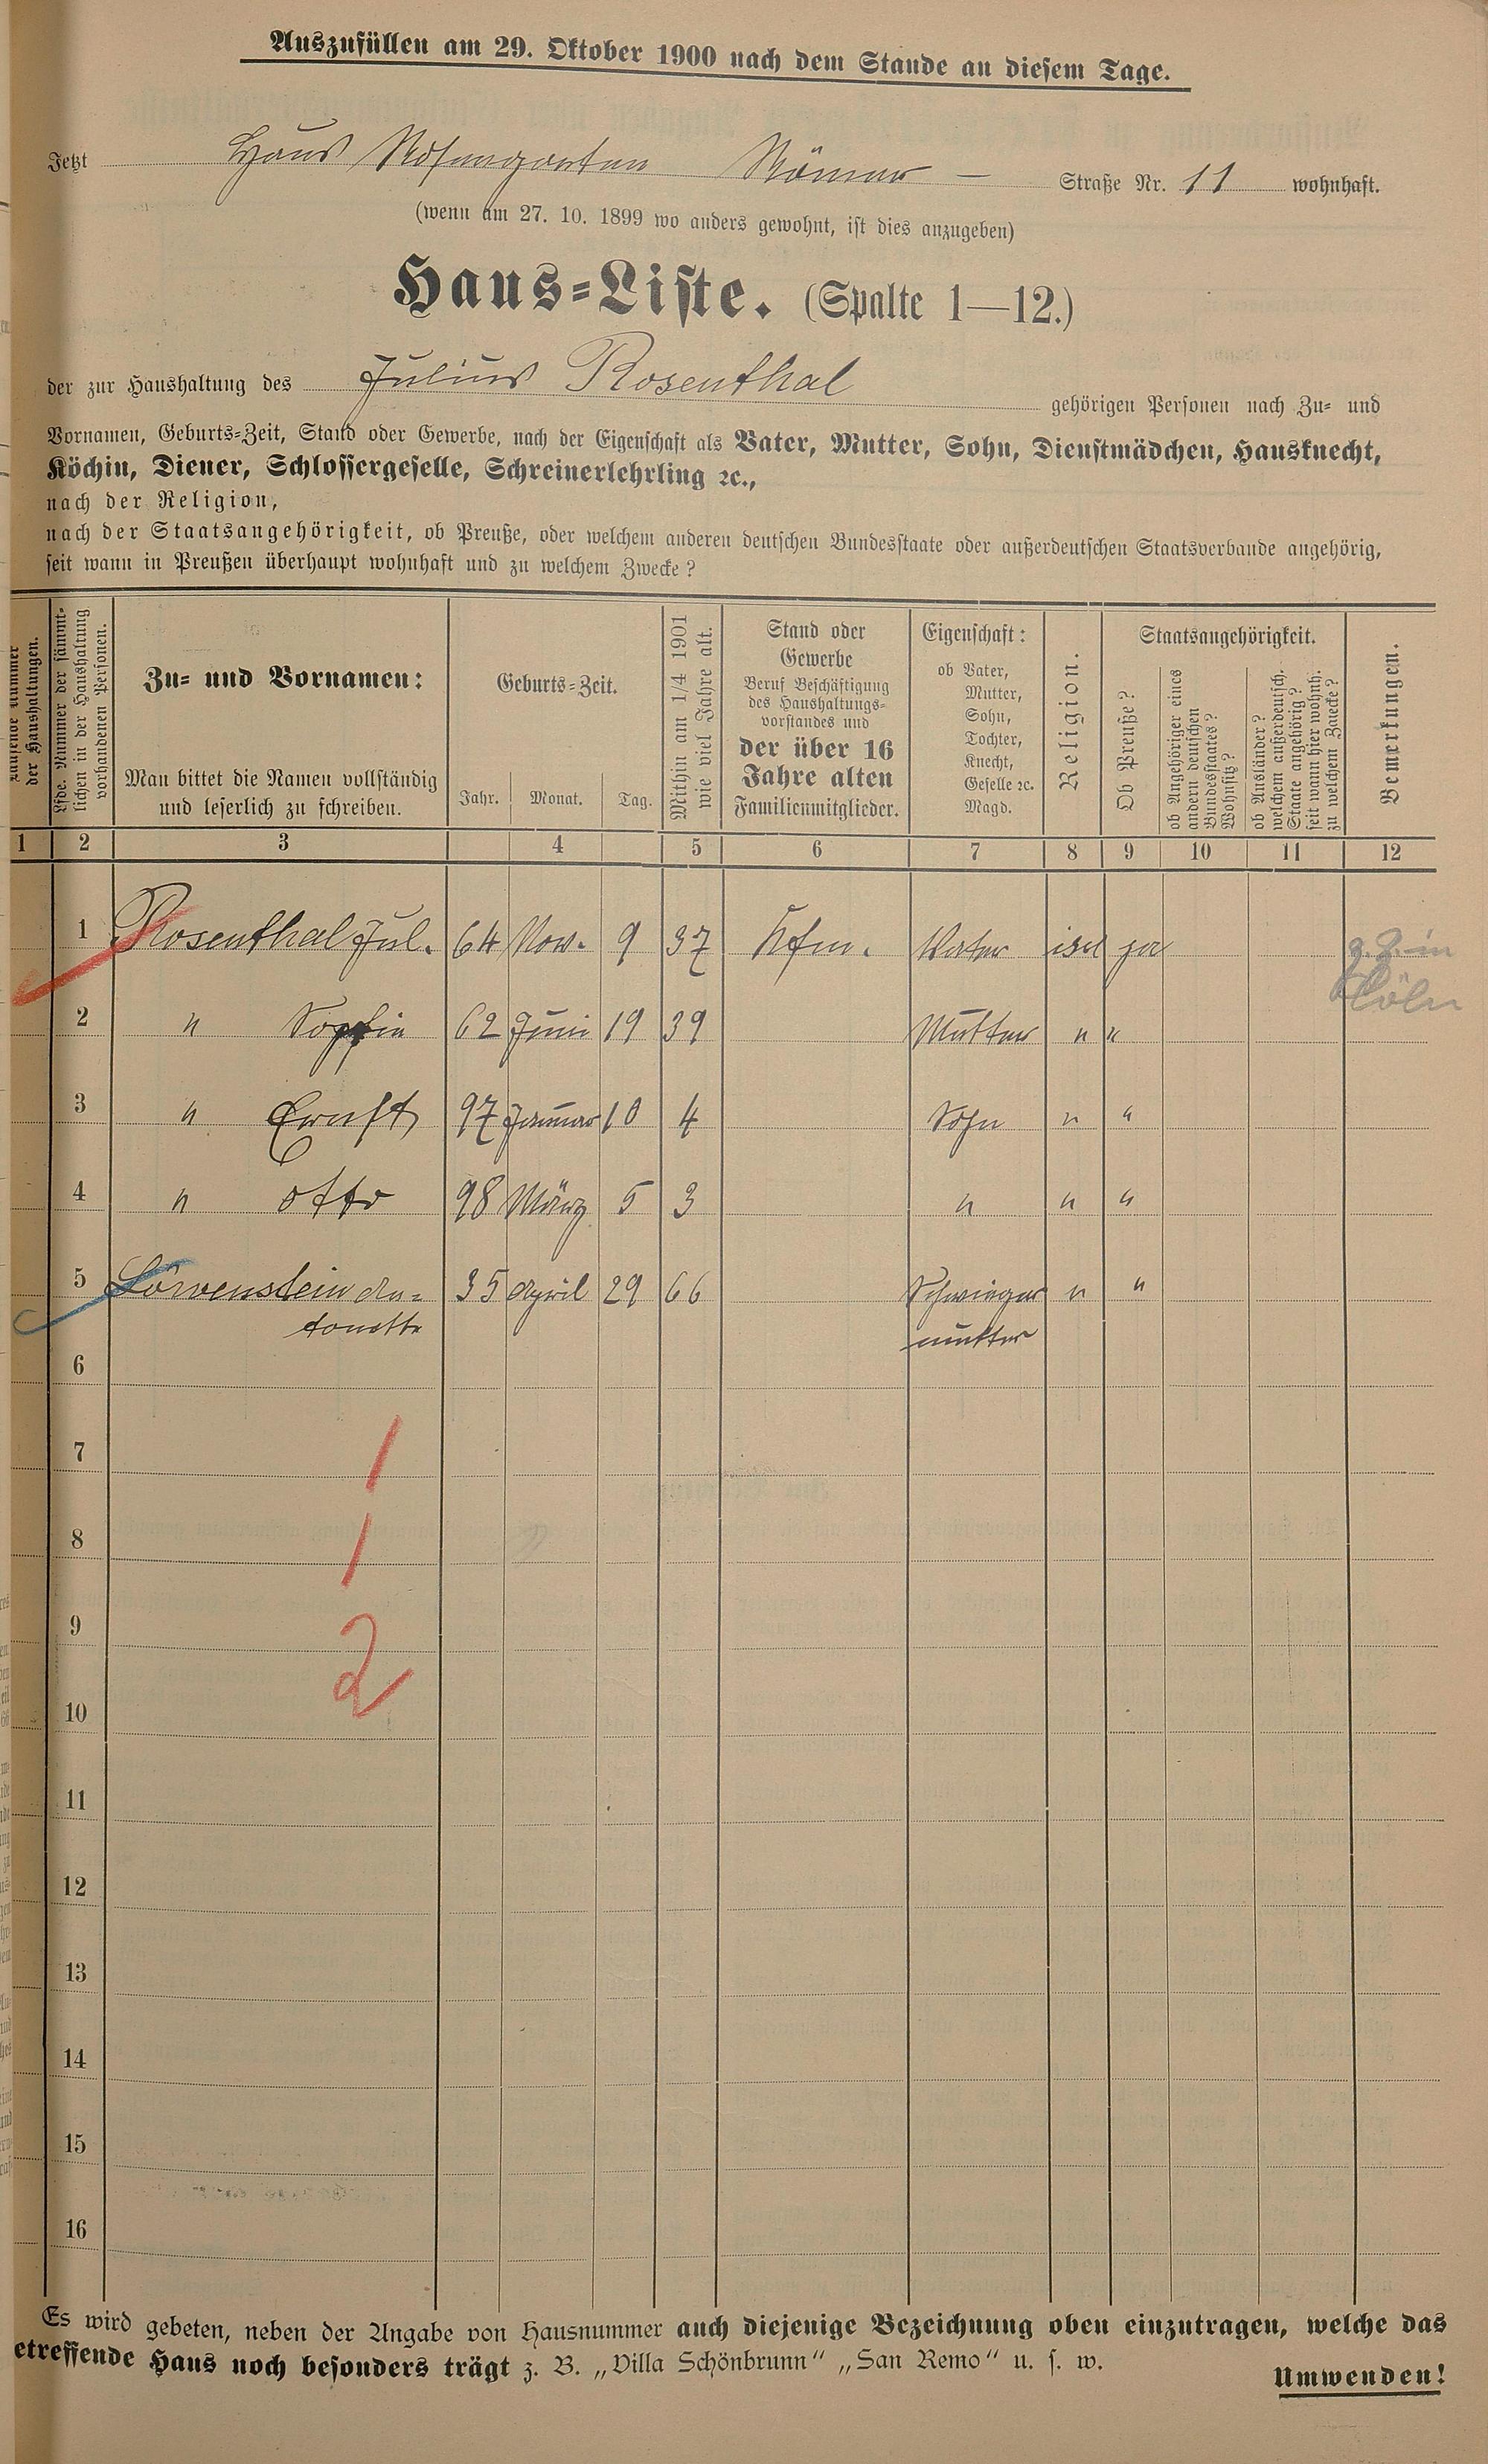 Auszufüllen am 29. Oktober 1900 nach dem Stande an diesem Tage.
Jetzt Haus Rosengarten Römer – Straße Nr. 11 wohnhaft.
(wenn am 27. 10. 1899 wo anders gewohnt, ist dies anzugeben)
Haus-Liste. (Spalte 1—12.)
der zur Haushaltung des Julius Rosenthal gehörigen Personen nach Zu- und
Vornamen, Geburts-Zeit, Stand oder Gewerbe, nach der Eigenschaft als Vater, Mutter, Sohn, Dienstmädchen, Hausknecht,
Köchin, Diener, Schlossergeselle, Schreinerlehrling ꝛc.,
nach der Religion,
nach der Staatsangehörigkeit, ob Preuße, oder welchem anderen deutschen Bundesstaate oder außerdeutschen Staatsverbande angehörig,
seit wann in Preußen überhaupt wohnhaft und zu welchem Zwecke?
laufende Nummer
der Haushaltungen.
Lfde. Nummer der sämmt-
lichen in der Haushaltung
vorhandenen Personen.
Zu- und Vornamen:
Man bittet die Namen vollständig
und leserlich zu schreiben.
Geburts-Zeit.
Jahr. Monat. Tag.
Mithin am 1/4 1901
wie viel Jahre alt.
Stand oder
Gewerbe
Beruf Beschäftigung
des Haushaltungs-
vorstandes und
der über 16
Jahre alten
Familienmitglieder.
Eigenschaft:
ob Vater,
Mutter,
Sohn,
Tochter,
Knecht,
Geselle ꝛc.
Magd.
Religion.
Staatsangehörigkeit.
Ob Preuße?
ob Angehöriger eines
andern deutschen
Bundesstaates?
Wohnsitz?
ob Ausländer?
welchem außerdeutsch.
Staate angehörig?
seit wann hier wohnh.
zu welchem Zwecke?
Bemerkungen.
1 2 3 4 5 6 7 8 9 10 11 12
1 Rosenthal Jul. 64 Nov. 9 37 Kfm. Vater isrl ja z. Z. in
Cöln
2 " Sophie 62 Juni 19 39 Mutter " "
3 " Ernst 97 Januar 10 4 Sohn " "
4 " Otto 98 März 5 3 " " "
5 Löwenstein An= 35 April 29 66 Schwieger " "
tonette mutter
6
7 1
8 1
9 2
10
11
12
13
14
15
16
Es wird gebeten, neben der Angabe von Hausnummer auch diejenige Bezeichnung oben einzutragen, welche das
etreffende Haus noch besonders trägt z. B. „Villa Schönbrunn“ „San Remo“ u. s. w.
Umwenden!